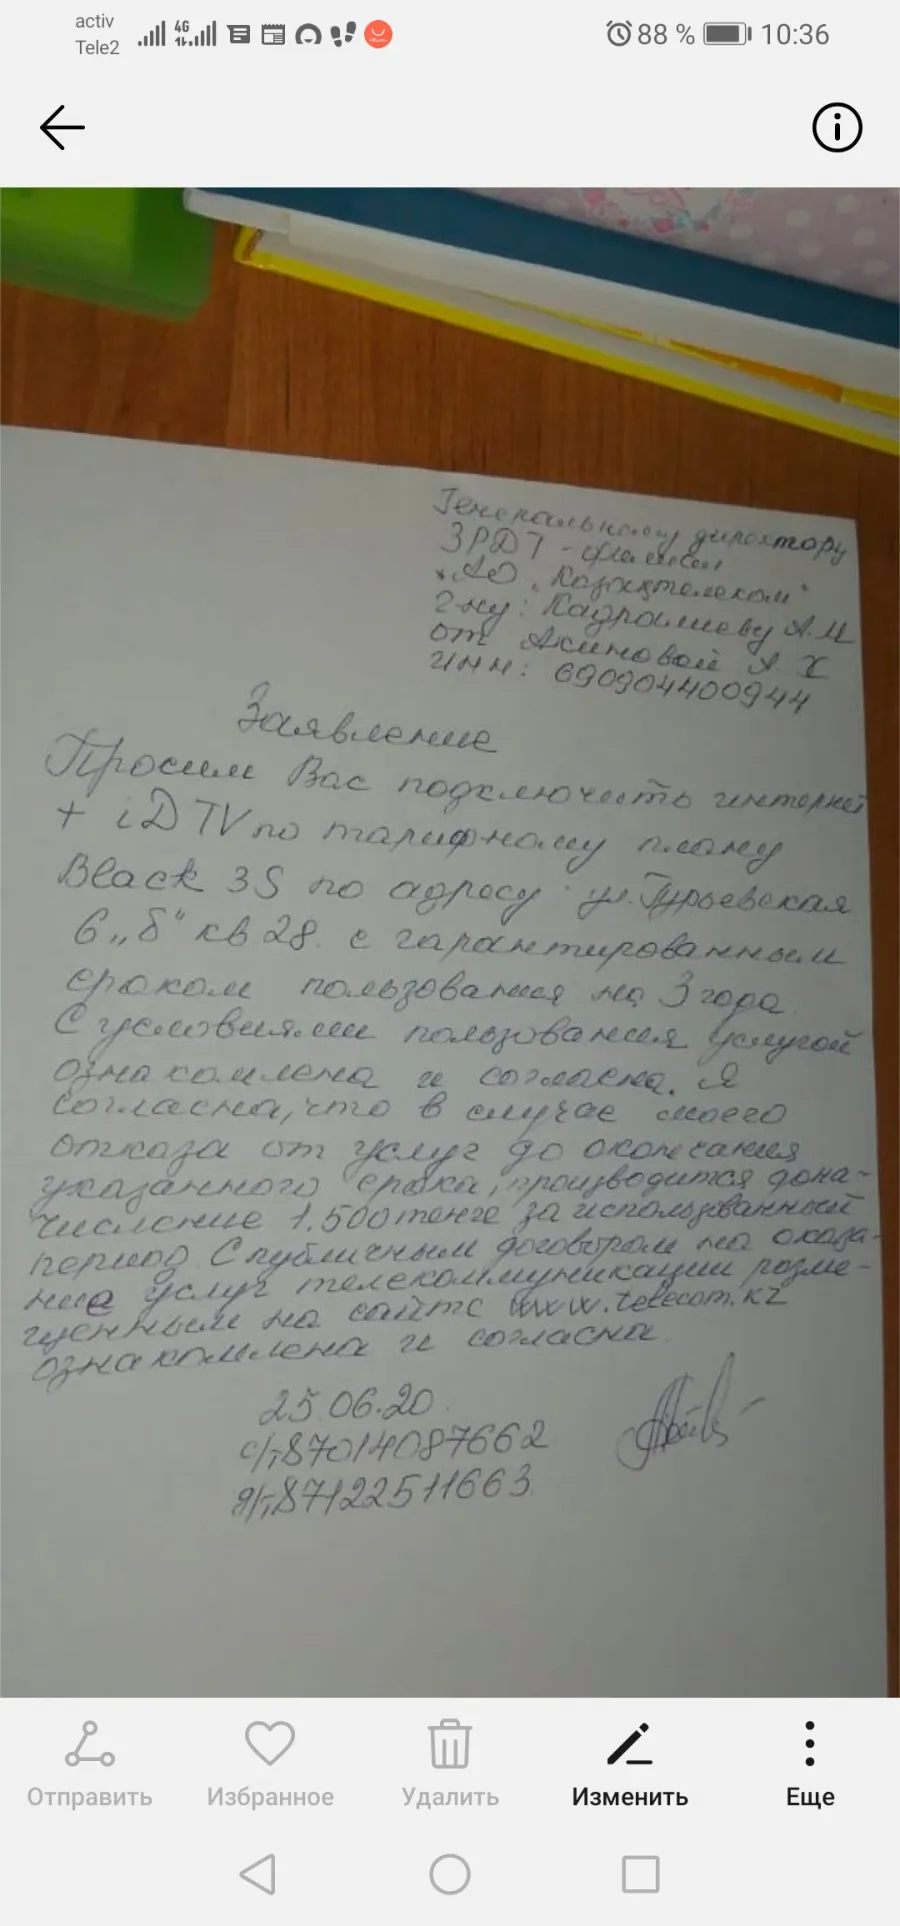 activ
Tele2
4G
88 %
10:36
Генеральному директору
ЗРДТ - филиал
"АО "Казахтелеком"
г-ну: Кадралиеву А.М
от Акиновой А. Х
ИНН: 690904400944
Заявление
Просим Вас подключить интернет
+ iD TV по тарифному плану
Black 3S по адресу ул. Гурьевская
6 „б" кв 28. с гарантированным
сроком пользования на 3 года.
С условиями пользования услугой
ознакомлена и согласна. Я
согласна, что в случае моего
отказа от услуг до окончания
указанного срока, производится дона-
числение 1.500 тенге за использванный
период. С публичным договором на оказа-
ние услуг телекоммуникации разме-
щенным на сайте www.telecom.kz
ознакомлена и согласна.
25.06.20
с/т, 87014087662
д/т, 87122511663
Отправить
Избранное
Удалить
Изменить
Еще